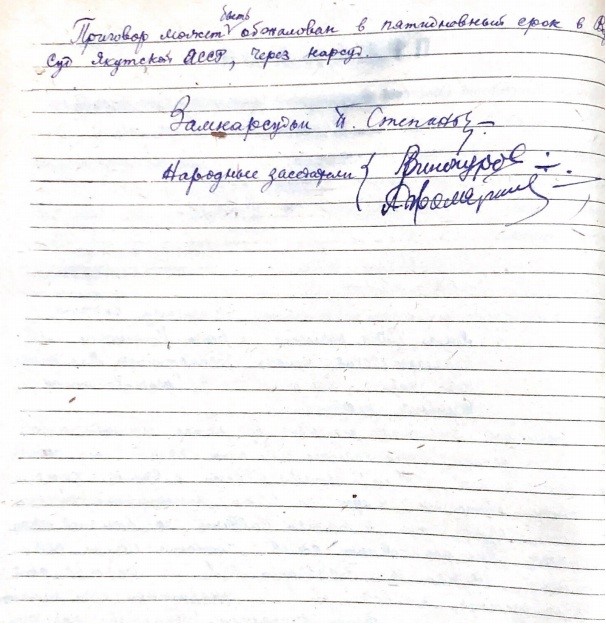 быть
Приговор может обжалован в пятидневный срок в В
Суд Якутской АССР, через нарсуд.
Замнарсудьи П. Степанов
Народные заседатели { Винокуров